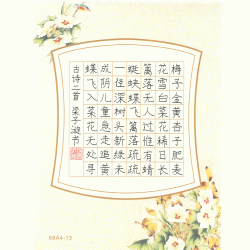 梅子金黄杏子肥麦
花雪白菜花稀日长
篱落无人过惟有蜻
蜓蛱蝶飞篱落疏疏
一径深树头新绿未
成阴儿童急走追黄
蝶飞入菜花无处寻
古诗二首 梁子书
68A4-13